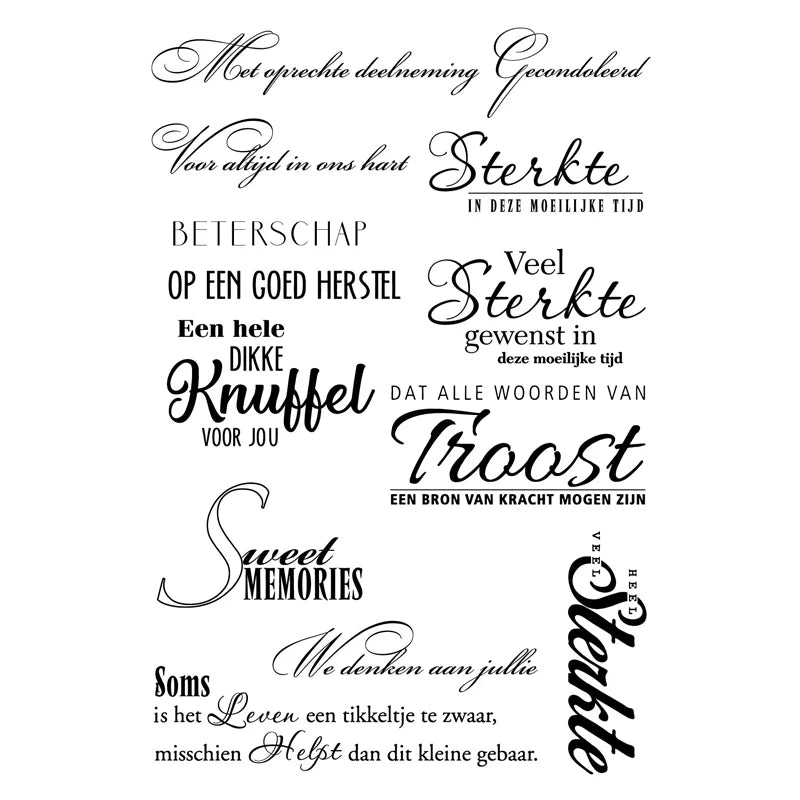 Met oprechte deelneming
Gecondoleerd
Voor altijd in ons hart
Sterkte
IN DEZE MOEILIJKE TIJD
BETERSCHAP
OP EEN GOED HERSTEL
Veel
Sterkte
gewenst in
deze moeilijke tijd
Een hele
DIKKE
Knuffel
VOOR JOU
DAT ALLE WOORDEN VAN
Troost
EEN BRON VAN KRACHT MOGEN ZIJN
Sweet
MEMORIES
HEEL
VEEL
Sterkte
We denken aan jullie
Soms
is het Leven een tikkeltje te zwaar,
misschien Helpt dan dit kleine gebaar.